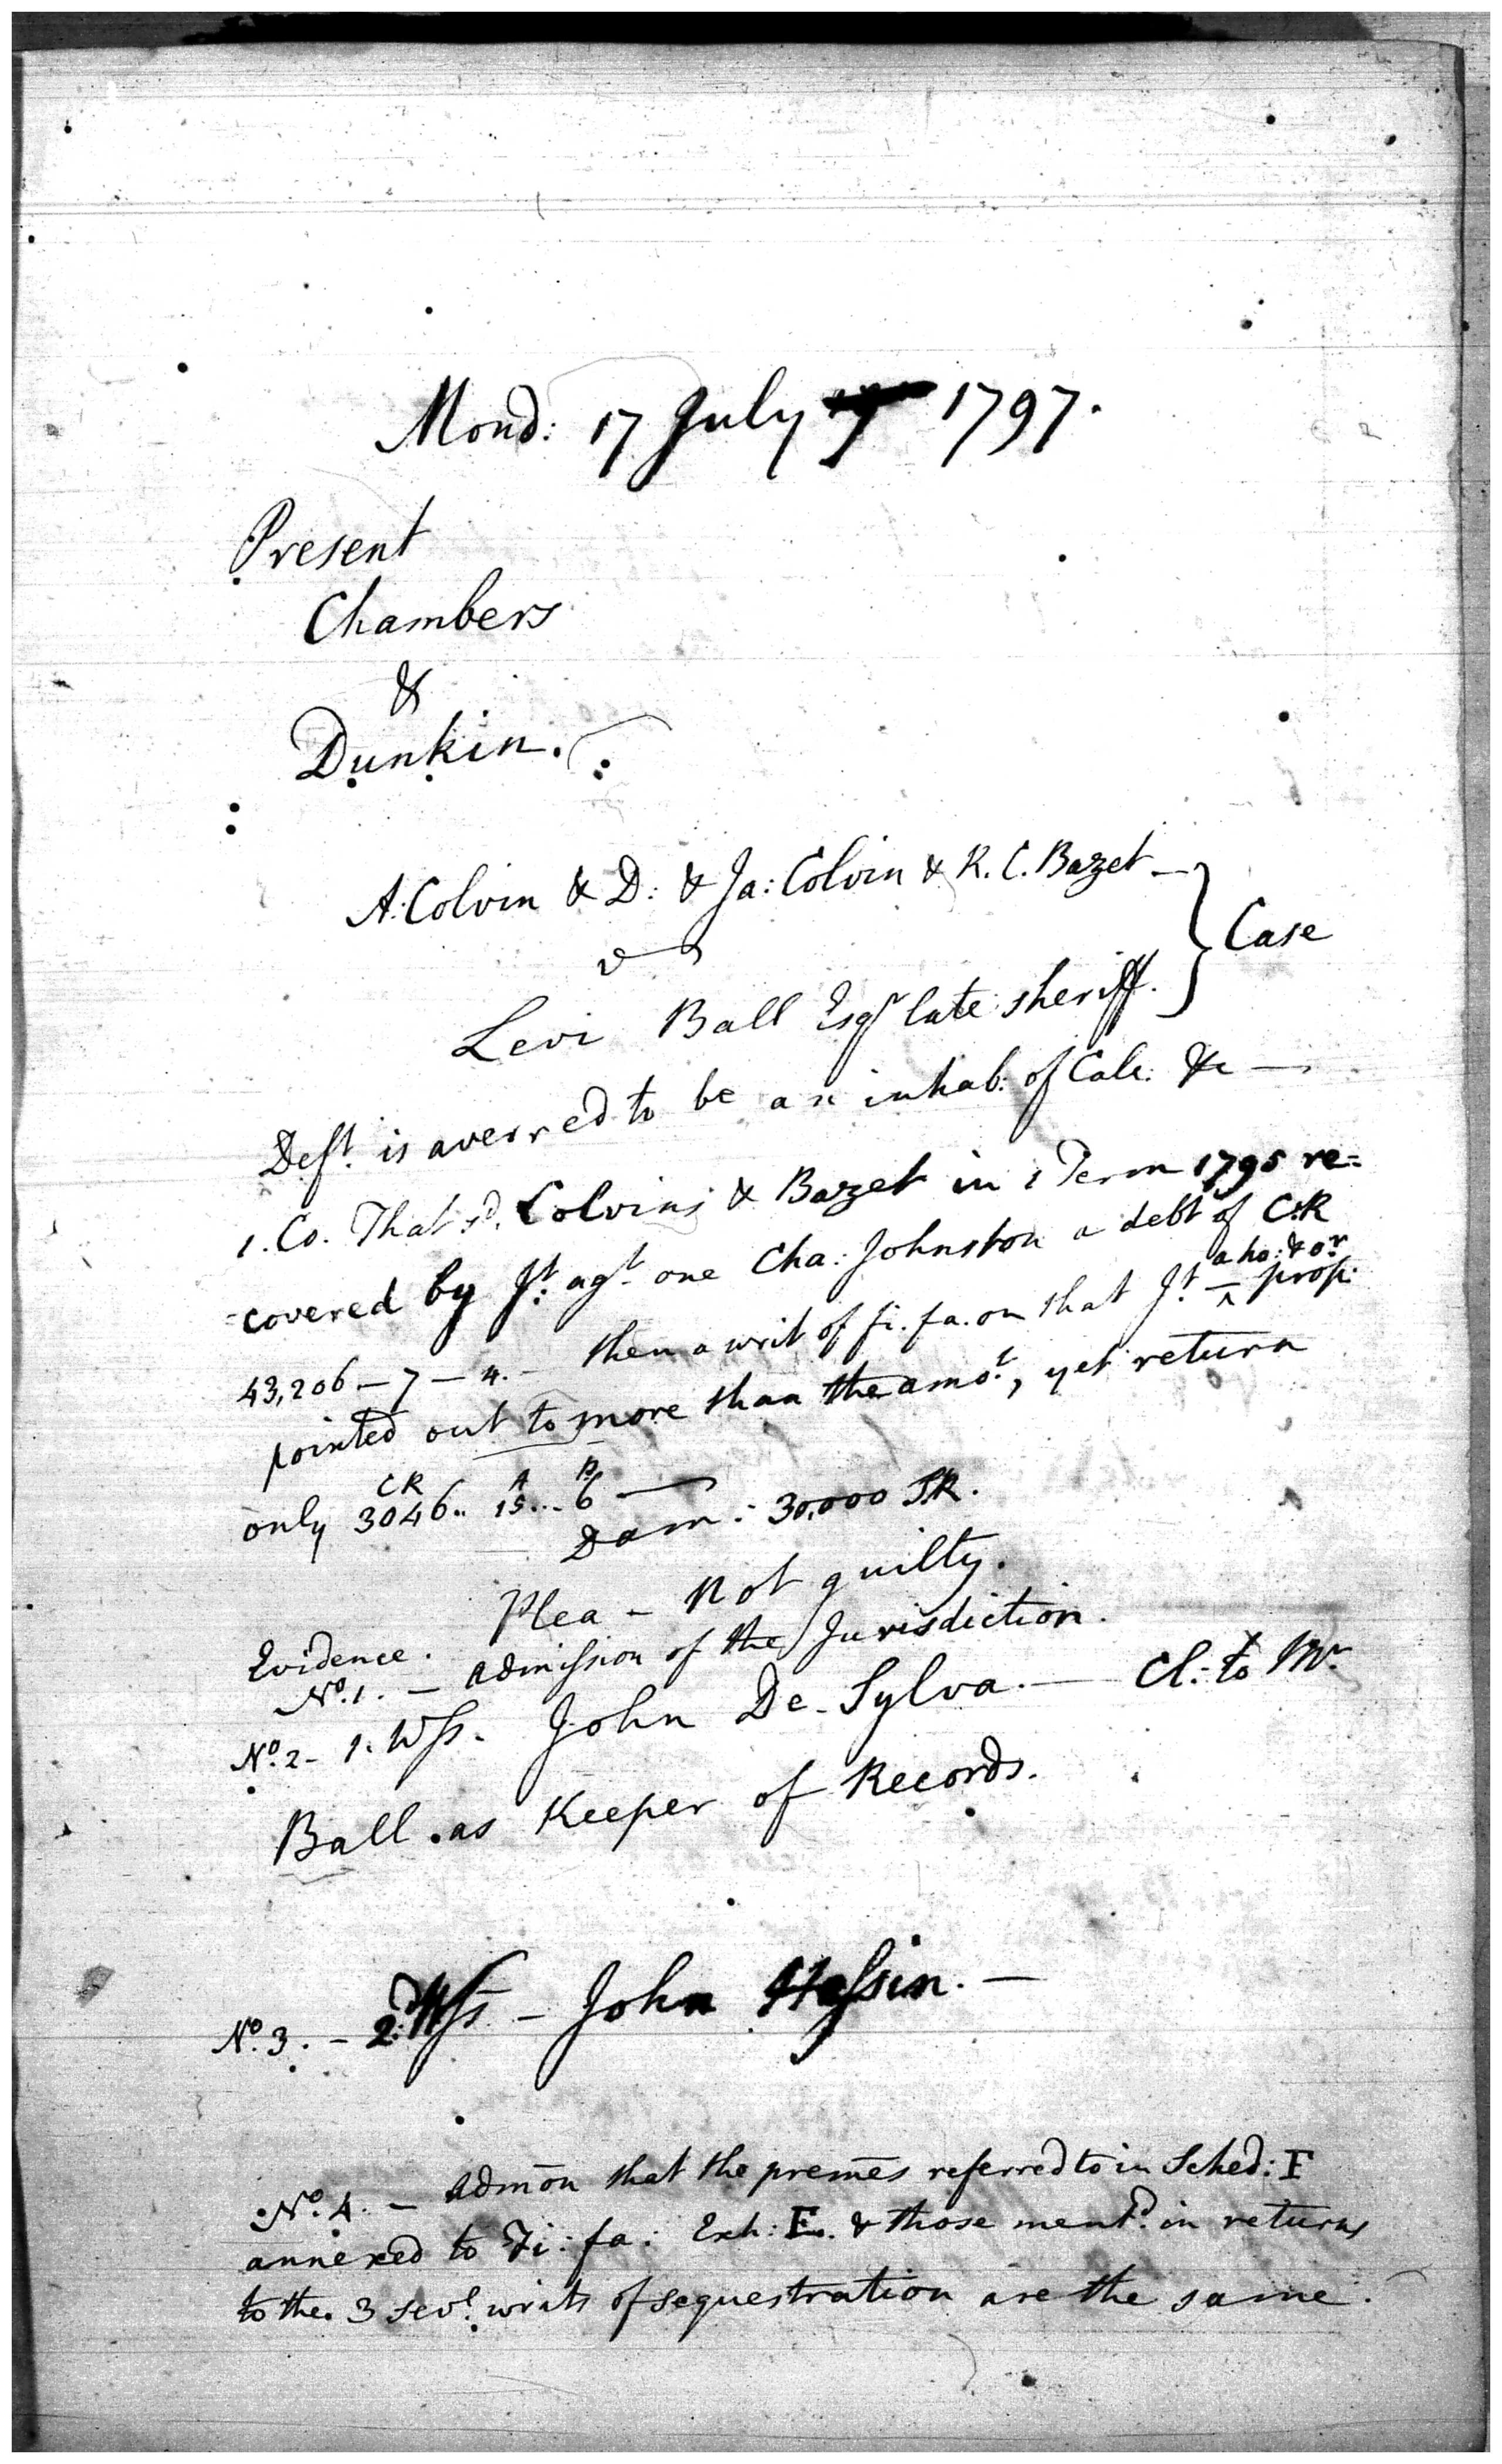 Mond: 17 July 1797.
Present
Chambers
&
Dunkin.
A: Colvin & D: & Ja: Colvin & R. C. Bazet —
vs
} Case
Levi Ball Esqr late sheriff.
Deft. is averred to be an inhab: of Calc: &c —
1. Co. That sd. Colvins & Bazet in 1 Term 1795 re=
-covered by Jt. agt. one Cha: Johnston a debt of C.R
a ho: & or
43,206 — 7 — 4. — then a writ of fi. fa. on that Jt. ^ prop:
pointed out to more than the amot., yet return
CR A P
only 3046.. 15... 6 —
Dam: 30,000 SR.
Plea — Not guilty.
Evidence.
No. 1. — Admission of the Jurisdiction.
No. 2 — 1. Wss. John De-Sylva. — Cl: to Mr.
Ball. as Keeper of Records.
No. 3. — 2d. Wss — John Hessin. —
No. 4. — Admōn that the premēs referred to in Sched: F
annexed to Fi: fa: Exh: E. & those mentd. in returns
to the 3 sevl. writs of sequestration are the same.